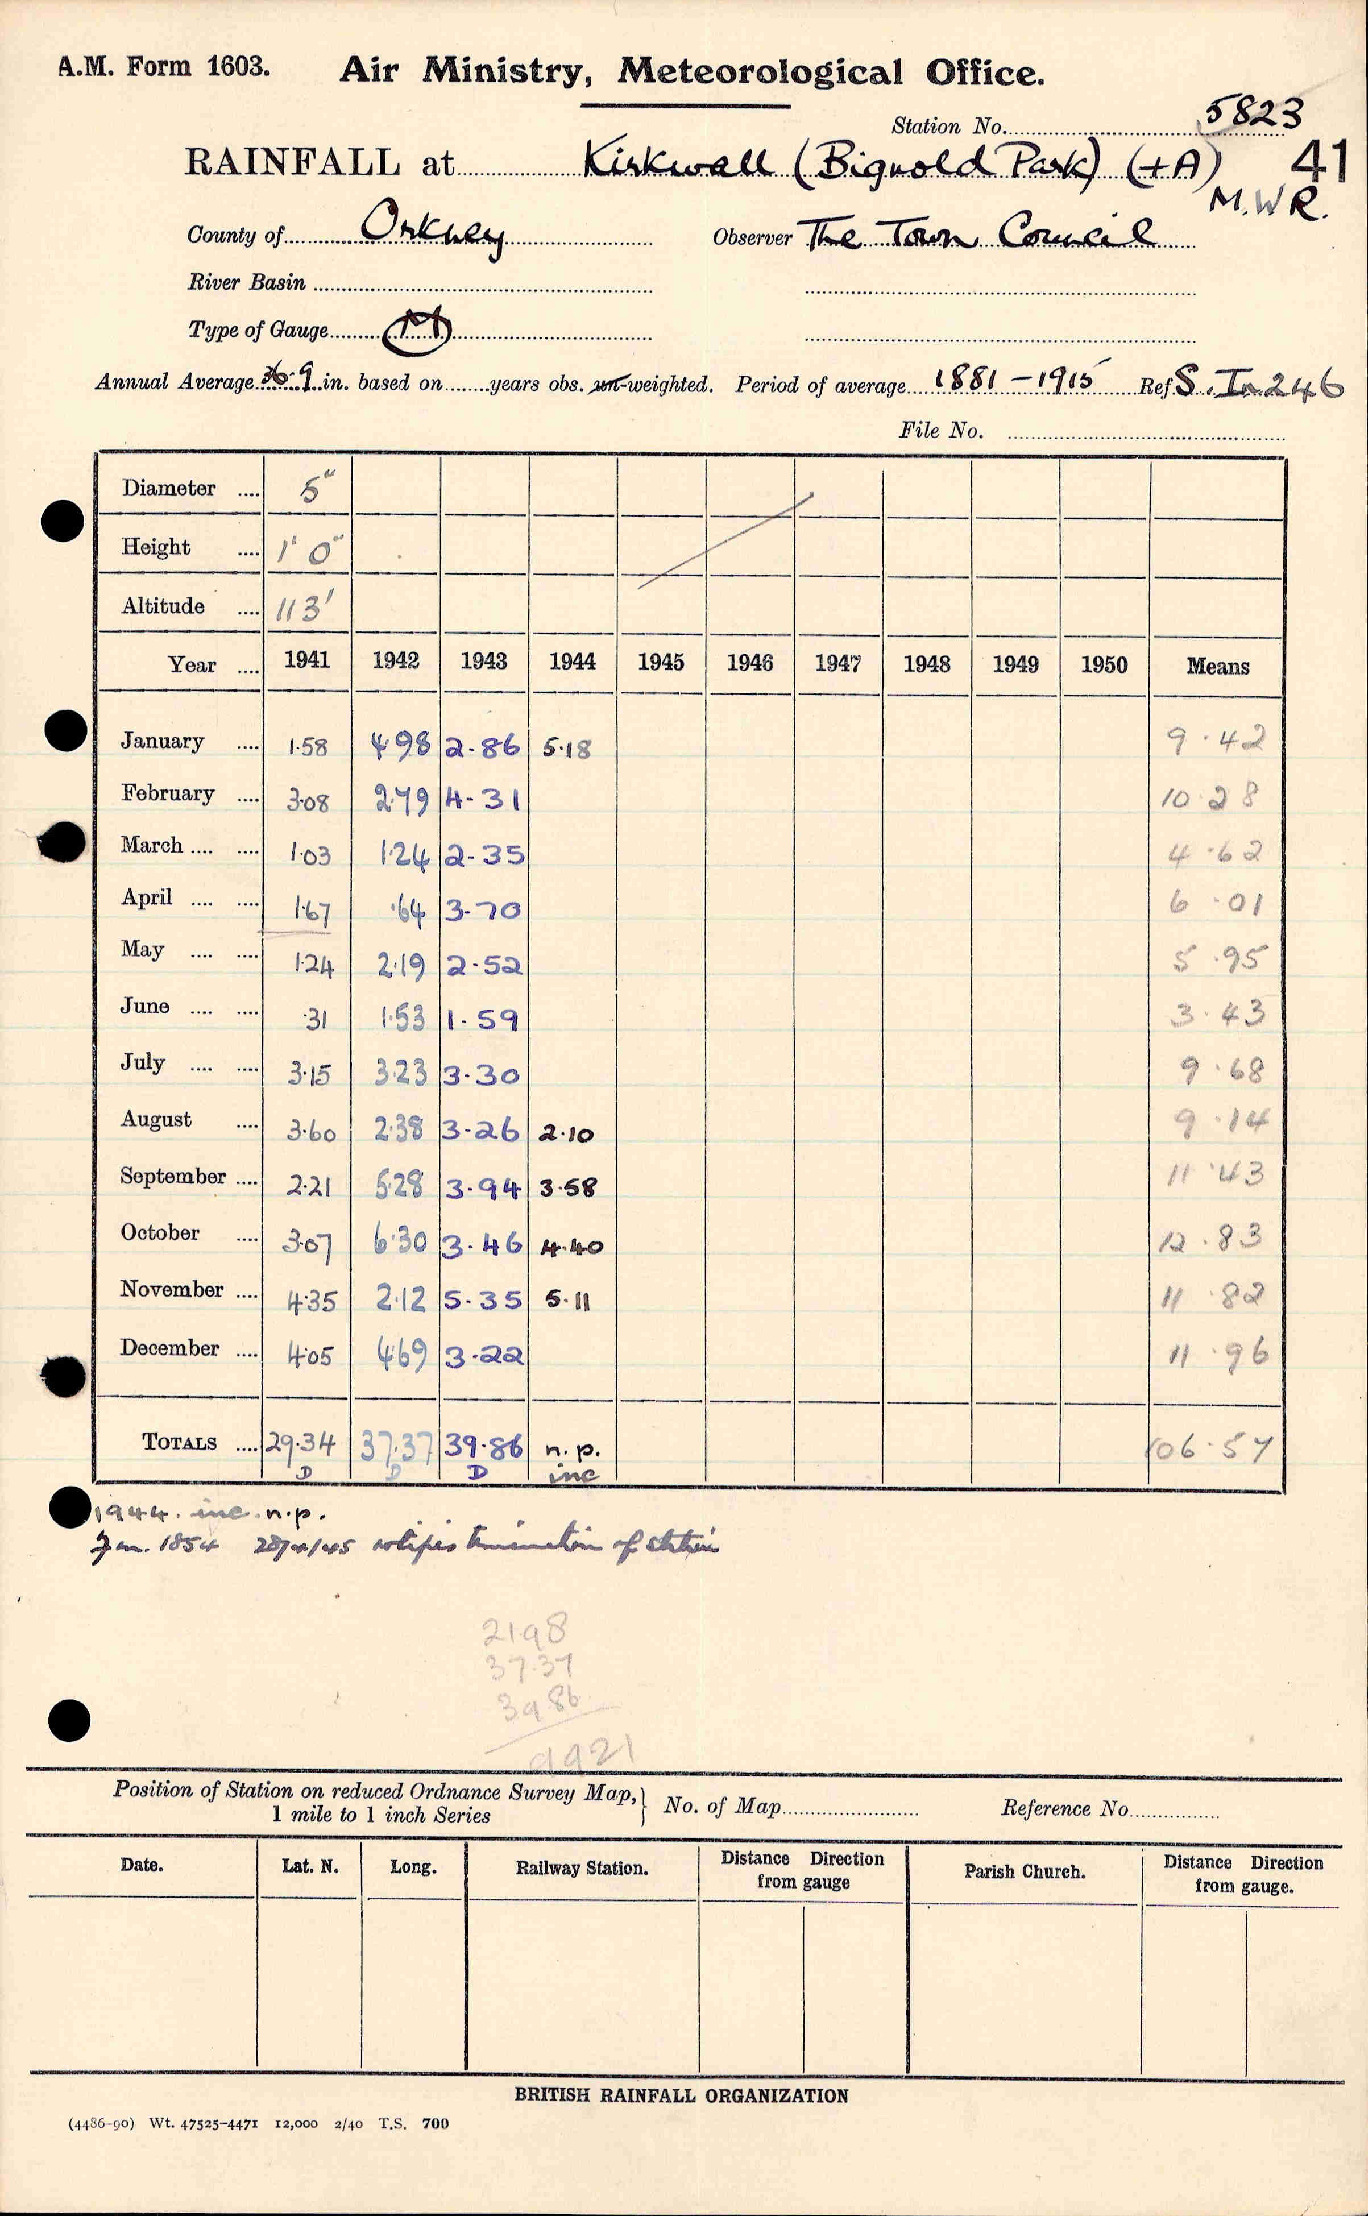 A.M. Form 1603. Air Ministry, Meteorological Office.
Station No. 5823
RAINFALL at Kirkwall (Bignold Park) (+A) 41
M.W.R.
County of Orkney Observer The Town Council
River Basin
Type of Gauge M
Annual Average 36.9 in. based on years obs. un-weighted. Period of average 1881-1915 Ref S. In 246
File No.
Diameter .... 5"
Height .... 1' 0"
Altitude .... 113'
Year .... 1941 1942 1943 1944 1945 1946 1947 1948 1949 1950 Means
January .... 1.58 4.98 2.86 5.18 9.42
February .... 3.08 2.79 4.31 10.28
March .... .... 1.03 1.24 2.35 4.62
April .... .... 1.67 .64 3.70 6.01
May .... .... 1.24 2.19 2.52 5.95
June .... .... .31 1.53 1.59 3.43
July .... .... 3.15 3.23 3.30 9.68
August .... 3.60 2.38 3.26 2.10 9.14
September .... 2.21 5.28 3.94 3.58 11.43
October .... 3.07 6.30 3.46 4.40 12.83
November .... 4.35 2.12 5.35 5.11 11.82
December .... 4.05 4.69 3.22 11.96
TOTALS .... 29.34 37.37 39.86 n.p. 106.57
D D D inc
1944. inc. n.p.
1854 28/4/45 notifies termination of station
2198
37.37
39 86
9921
Position of Station on reduced Ordnance Survey Map, } No. of Map Reference No.
1 mile to 1 inch Series
Date. Lat. N. Long. Railway Station. Distance Direction from gauge Parish Church. Distance Direction from gauge.
BRITISH RAINFALL ORGANIZATION
(4486-90) Wt. 47525-4471 12,000 2/40 T.S. 700